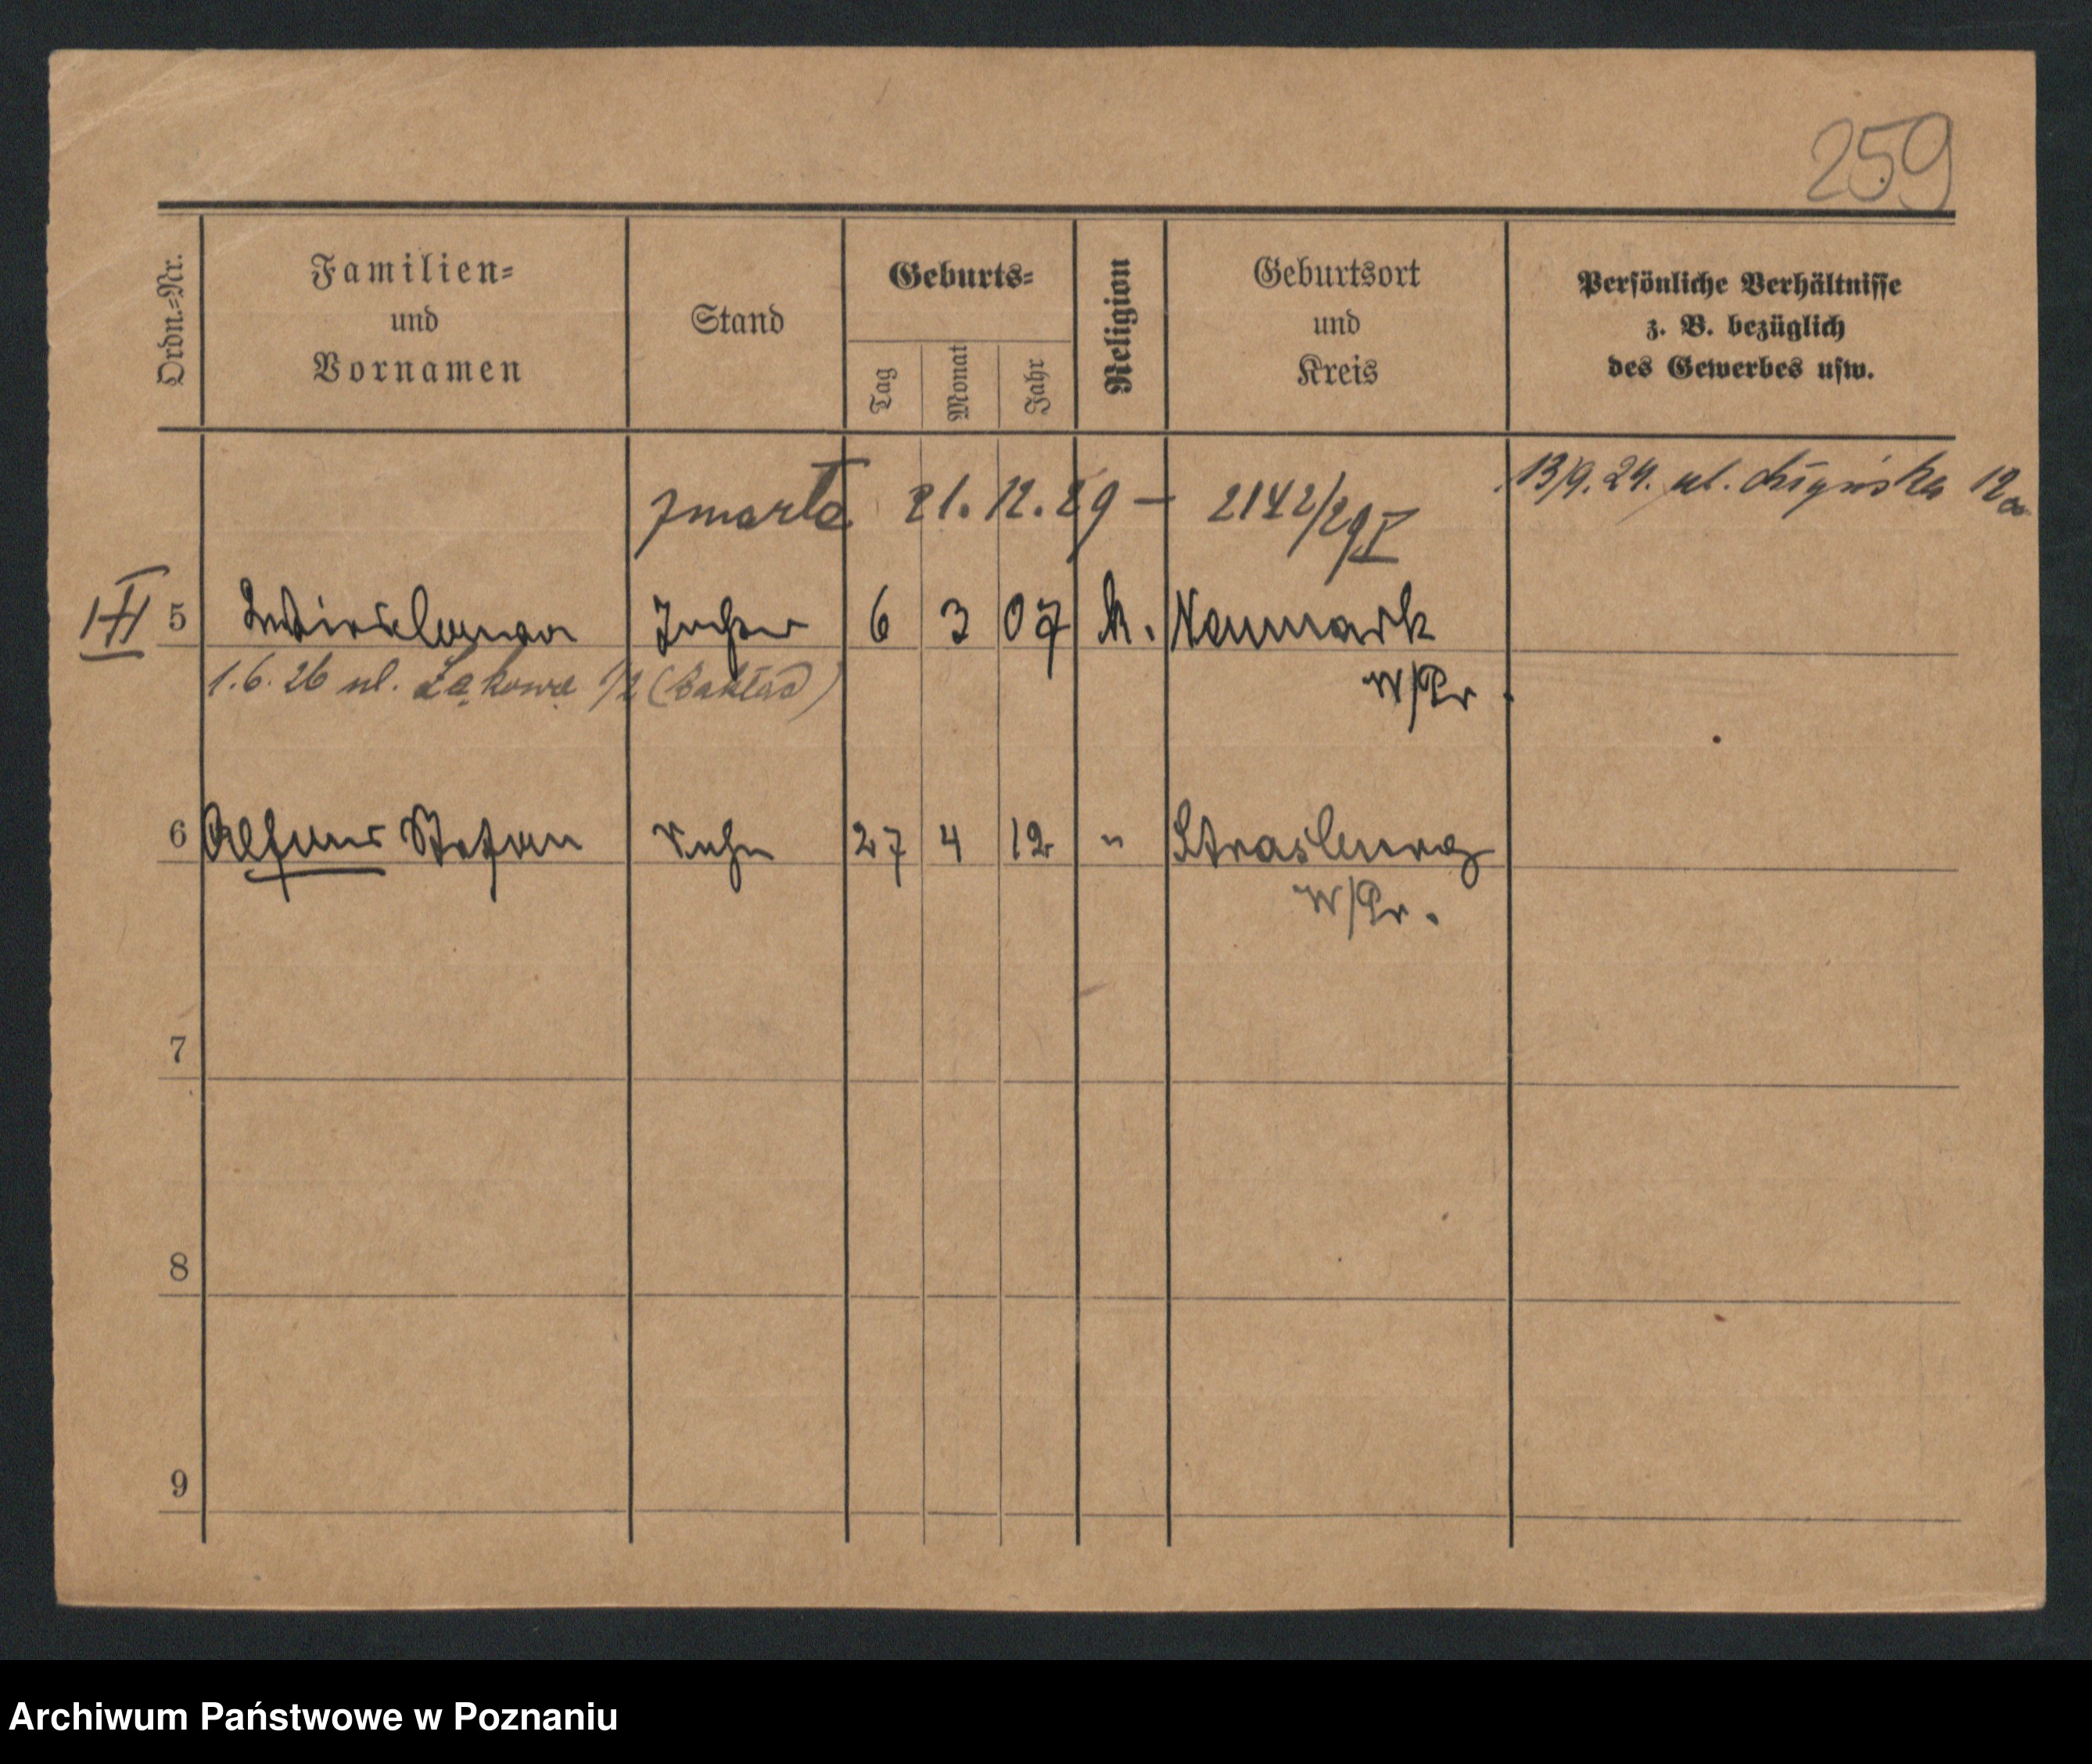 259
Ordn.=Nr.
Familien=
und
Vornamen
Stand
Geburts=
Tag
Monat
Jahr
Religion
Geburtsort
und
Kreis
Persönliche Verhältnisse
z. B. bezüglich
des Gewerbes usw.
13/9. 24. ul. 12a
zmarła 21.12.29 – 2142/29 I
5 6 3 07 k. Neumark
W/Pr.
1.6.26 ul. Łąkowa 1/2 (Zakład)
6 Alfons Stefan Sohn 27 4 12 " Strasburg
W/Pr.
7
8
9
Archiwum Państwowe w Poznaniu